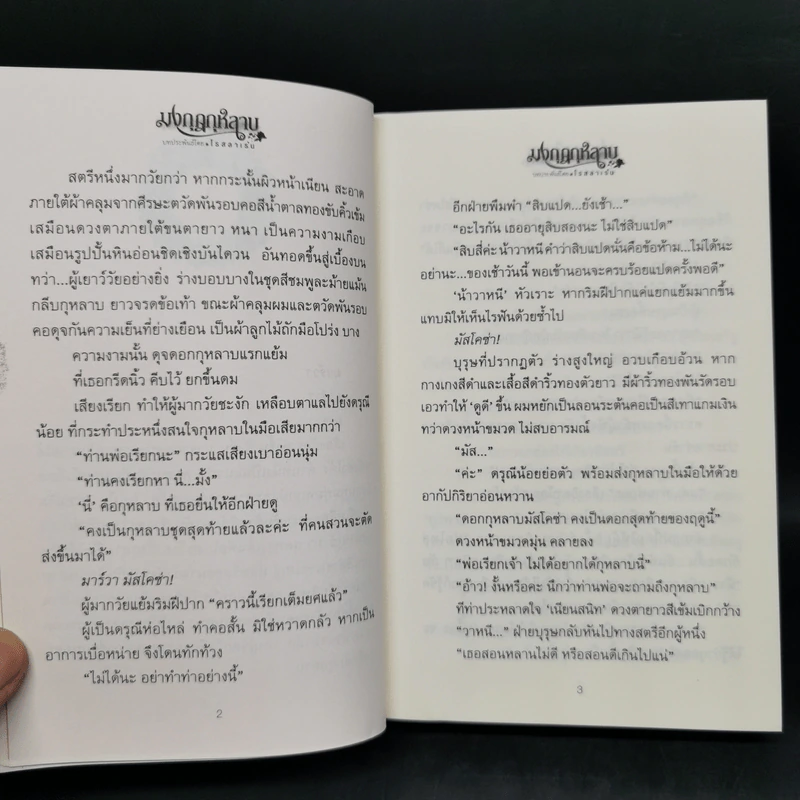 มงกุฎกุหลาบ
บทประพันธ์โดย โรสลาเรน
สตรีหนึ่งมากวัยกว่า หากกระนั้นผิวหน้าเนียน สะอาด
ภายใต้ผ้าคลุมจากศีรษะตวัดพันรอบคอสีน้ำตาลทองขับคิ้วเข้ม
เสมือนดวงตาภายใต้ขนตายาว หนา เป็นความงามเกือบ
เสมือนรูปปั้นหินอ่อนชิดเชิงบันไดวน อันทอดขึ้นสู่เบื้องบน
ทว่า...ผู้เยาว์วัยอย่างยิ่ง ร่างบอบบางในชุดสีชมพูละม้ายแม้น
กลีบกุหลาบ ยาวจรดข้อเท้า ขณะผ้าคลุมผมและตวัดพันรอบ
คอดุจกันความเย็นที่ย่างเยือน เป็นผ้าลูกไม้ถักมือโปร่ง บาง
ความงามนั้น ดุจดอกกุหลาบแรกแย้ม
ที่เธอกรีดนิ้ว คีบไว้ ยกขึ้นดม
เสียงเรียก ทำให้ผู้มากวัยชะงัก เหลือบตาแลไปยังดรุณี
น้อย ที่กระทำประหนึ่งสนใจกุหลาบในมือเสียมากกว่า
“ท่านพ่อเรียกนะ” กระแสเสียงเบาอ่อนนุ่ม
“ท่านคงเรียกหา นี่...มั้ง”
‘นี่’ คือกุหลาบ ที่เธอยื่นให้อีกฝ่ายดู
“คงเป็นกุหลาบชุดสุดท้ายแล้วละค่ะ ที่คนสวนจะตัด
ส่งขึ้นมาได้”
มาร์วา มัสโคซ่า!
ผู้มากวัยแย้มริมฝีปาก “คราวนี้เรียกเต็มยศแล้ว”
ผู้เป็นดรุณีห่อไหล่ ทำคอสั้น มิใช่หวาดกลัว หากเป็น
อาการเบื่อหน่าย จึงโดนทักท้วง
“ไม่ได้นะ อย่าทำท่าอย่างนี้”
2
มงกุฎกุหลาบ
บทประพันธ์โดย โรสลาเรน
อีกฝ่ายพึมพำ “สิบแปด...ยังเช้า...”
“อะไรกัน เธออายุสิบสองนะ ไม่ใช่สิบแปด”
“สิบสี่ค่ะ น้าวาหนี คำว่าสิบแปดนั่นคือข้อห้าม...ไม่ได้นะ
อย่านะ...ของเช้าวันนี้ พอเข้านอนจะครบร้อยแปดครั้งพอดี”
‘น้าวาหนี’ หัวเราะ หากริมฝีปากแค่แยกแย้มมากขึ้น
แทบมิให้เห็นไรฟันด้วยซ้ำไป
มัสโคซ่า!
บุรุษที่ปรากฏตัว ร่างสูงใหญ่ อวบเกือบอ้วน หาก
กางเกงสีดำและเสื้อสีดำริ้วทองตัวยาว มีผ้าริ้วทองพันรัดรอบ
เอวทำให้ ‘ดูดี’ ขึ้น ผมหยักเป็นลอนระต้นคอเป็นสีเทาแกมเงิน
ทว่าดวงหน้าขมวด ไม่สบอารมณ์
“มัส...”
“ค่ะ” ดรุณีน้อยย่อตัว พร้อมส่งกุหลาบในมือให้ด้วย
อากัปกิริยาอ่อนหวาน
“ดอกกุหลาบมัสโคซ่า คงเป็นดอกสุดท้ายของฤดูนี้”
ดวงหน้าขมวดมุ่น คลายลง
“พ่อเรียกเจ้า ไม่ได้อยากได้กุหลาบนี่”
“อ้าว! งั้นหรือคะ นึกว่าท่านพ่อจะถามถึงกุหลาบ”
ทีท่าประหลาดใจ ‘เนียนสนิท’ ดวงตายาวสีเข้มเบิกกว้าง
“วาหนี...” ฝ่ายบุรุษกลับหันไปทางสตรีอีกผู้หนึ่ง
“เธอสอนหลานไม่ดี หรือสอนดีเกินไปแน่”
3